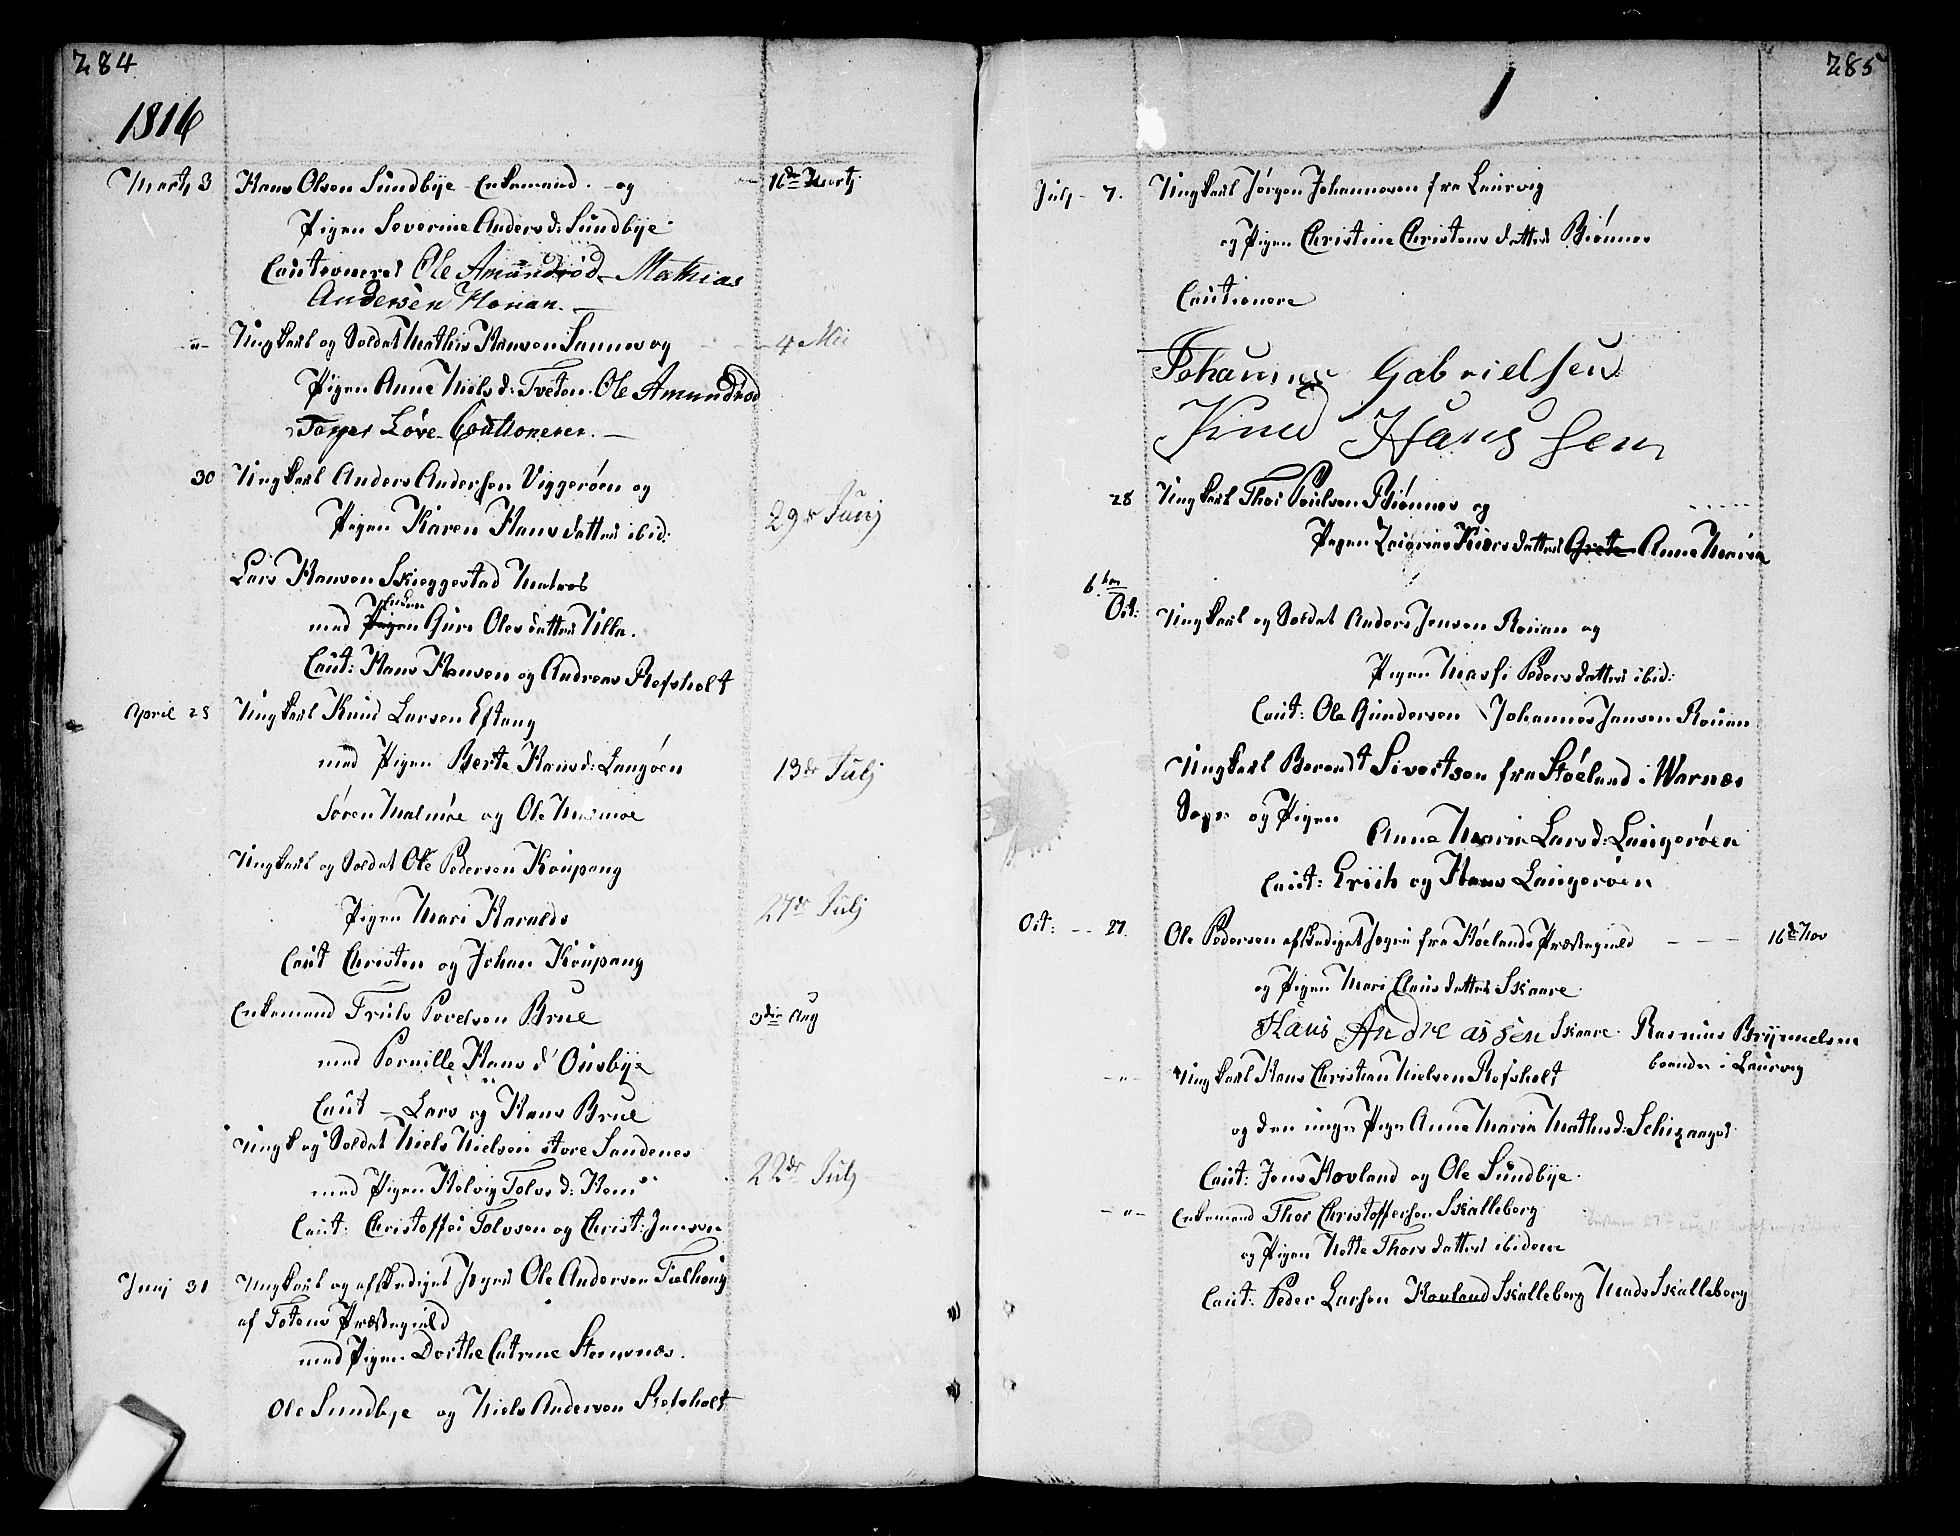 284
1816
Martj 3 Hans Olsen Sundbye Enkemand. og 16de Martj
Pigen Severine Anders d: Sundbye
Cautioneret Ole Amundrød Mathias
Andersen Horian.
-"- Ungkarl og Soldat Mathis Hansen Sannes og 4 Mei
Pigen Anne Niels d: Tveten. Ole Amundrød
Løve Cautionerer.
30 Ungkarl Anders Andersen Viggerøen og
Pigen Karen Hansdatter ibid: 29de Junj
Lars Hansen Skieggestad Matros
Enken
med Pigen Guri Olesdatter Ulla.
Caut: Hans Hansen og Andreas Refsholt
April 28 Ungkarl Knud Larsen Eftang
med Pigen Berte Hansd: Langøen 13de Julj
Søren Malmøe og Ole Malmøe
Ungkarl og Soldat Ole Pedersen Kaupang
Pigen Mari Haralds 27de Julj
Caut Christen og Johan Kaupang
Enkemand Truls Povelsen Brue 3die Aug
med Pernille Hans d' Ousbye
Caut - Lars og Hans Brue
Ungk og Soldat Niels Nielsen store Sandenes
med Pigen Helvig Tolvs d: Hem 22de Julj
Caut: Christoffer Tolvsen og Christ: Jansen
Junj 30 Ungkarl og afskediget Jeger Ole Andersen
af Totens Præstegield
med Pigen Dorthe Catrine Steensnæs.
Ole Sundbye og Niels Andersen Refsholt
285
Julj - 7. Ungkarl Jørgen Johannesen fra Laurvig
og Pigen Christine Christens datter Biønnes
Cautionere
Johannes Gabrielsen
Knud Hanssen
28 Ungkarl Thor Poulsen Biønnes og
Pigen Kiersdatter Grete Anne Maria
6te
Oct: Ungkarl og Soldat Anders Jensen Rouan og
Pigen Massi Pedersdatter ibid:
Caut: Ole Gundersen Johannes Jansen Rouan
Ungkarl Berendt Sivertsen fra Støeland i Warnæs
Sogn og Pigen
Anne Maria Larsd: Laugerøen
Caut: Erich og Hans Laugerøen
Oct: - - 27. Ole Pedersen afskediget Jeger fra Høelands Præstegield - - - 16de Nov
og Pigen Mari Clausdatter Skaare
Hans Andreassen Skaare. Rasmus Brynnelsen
boende i Laurvig
-"- Ungkarl Hans Christian Nielsen Refsholt
og den unge Pige Anne Maria Mathisd:
Caut: Jens Hovland og Ole Sundbye.
-"- Enkemand Thor Christoffersen Skalleberg
og Pigen Mette Thorsdatter ibidem
Caut: Peder Larsen Hovland Skalleberg Mads Skalleberg